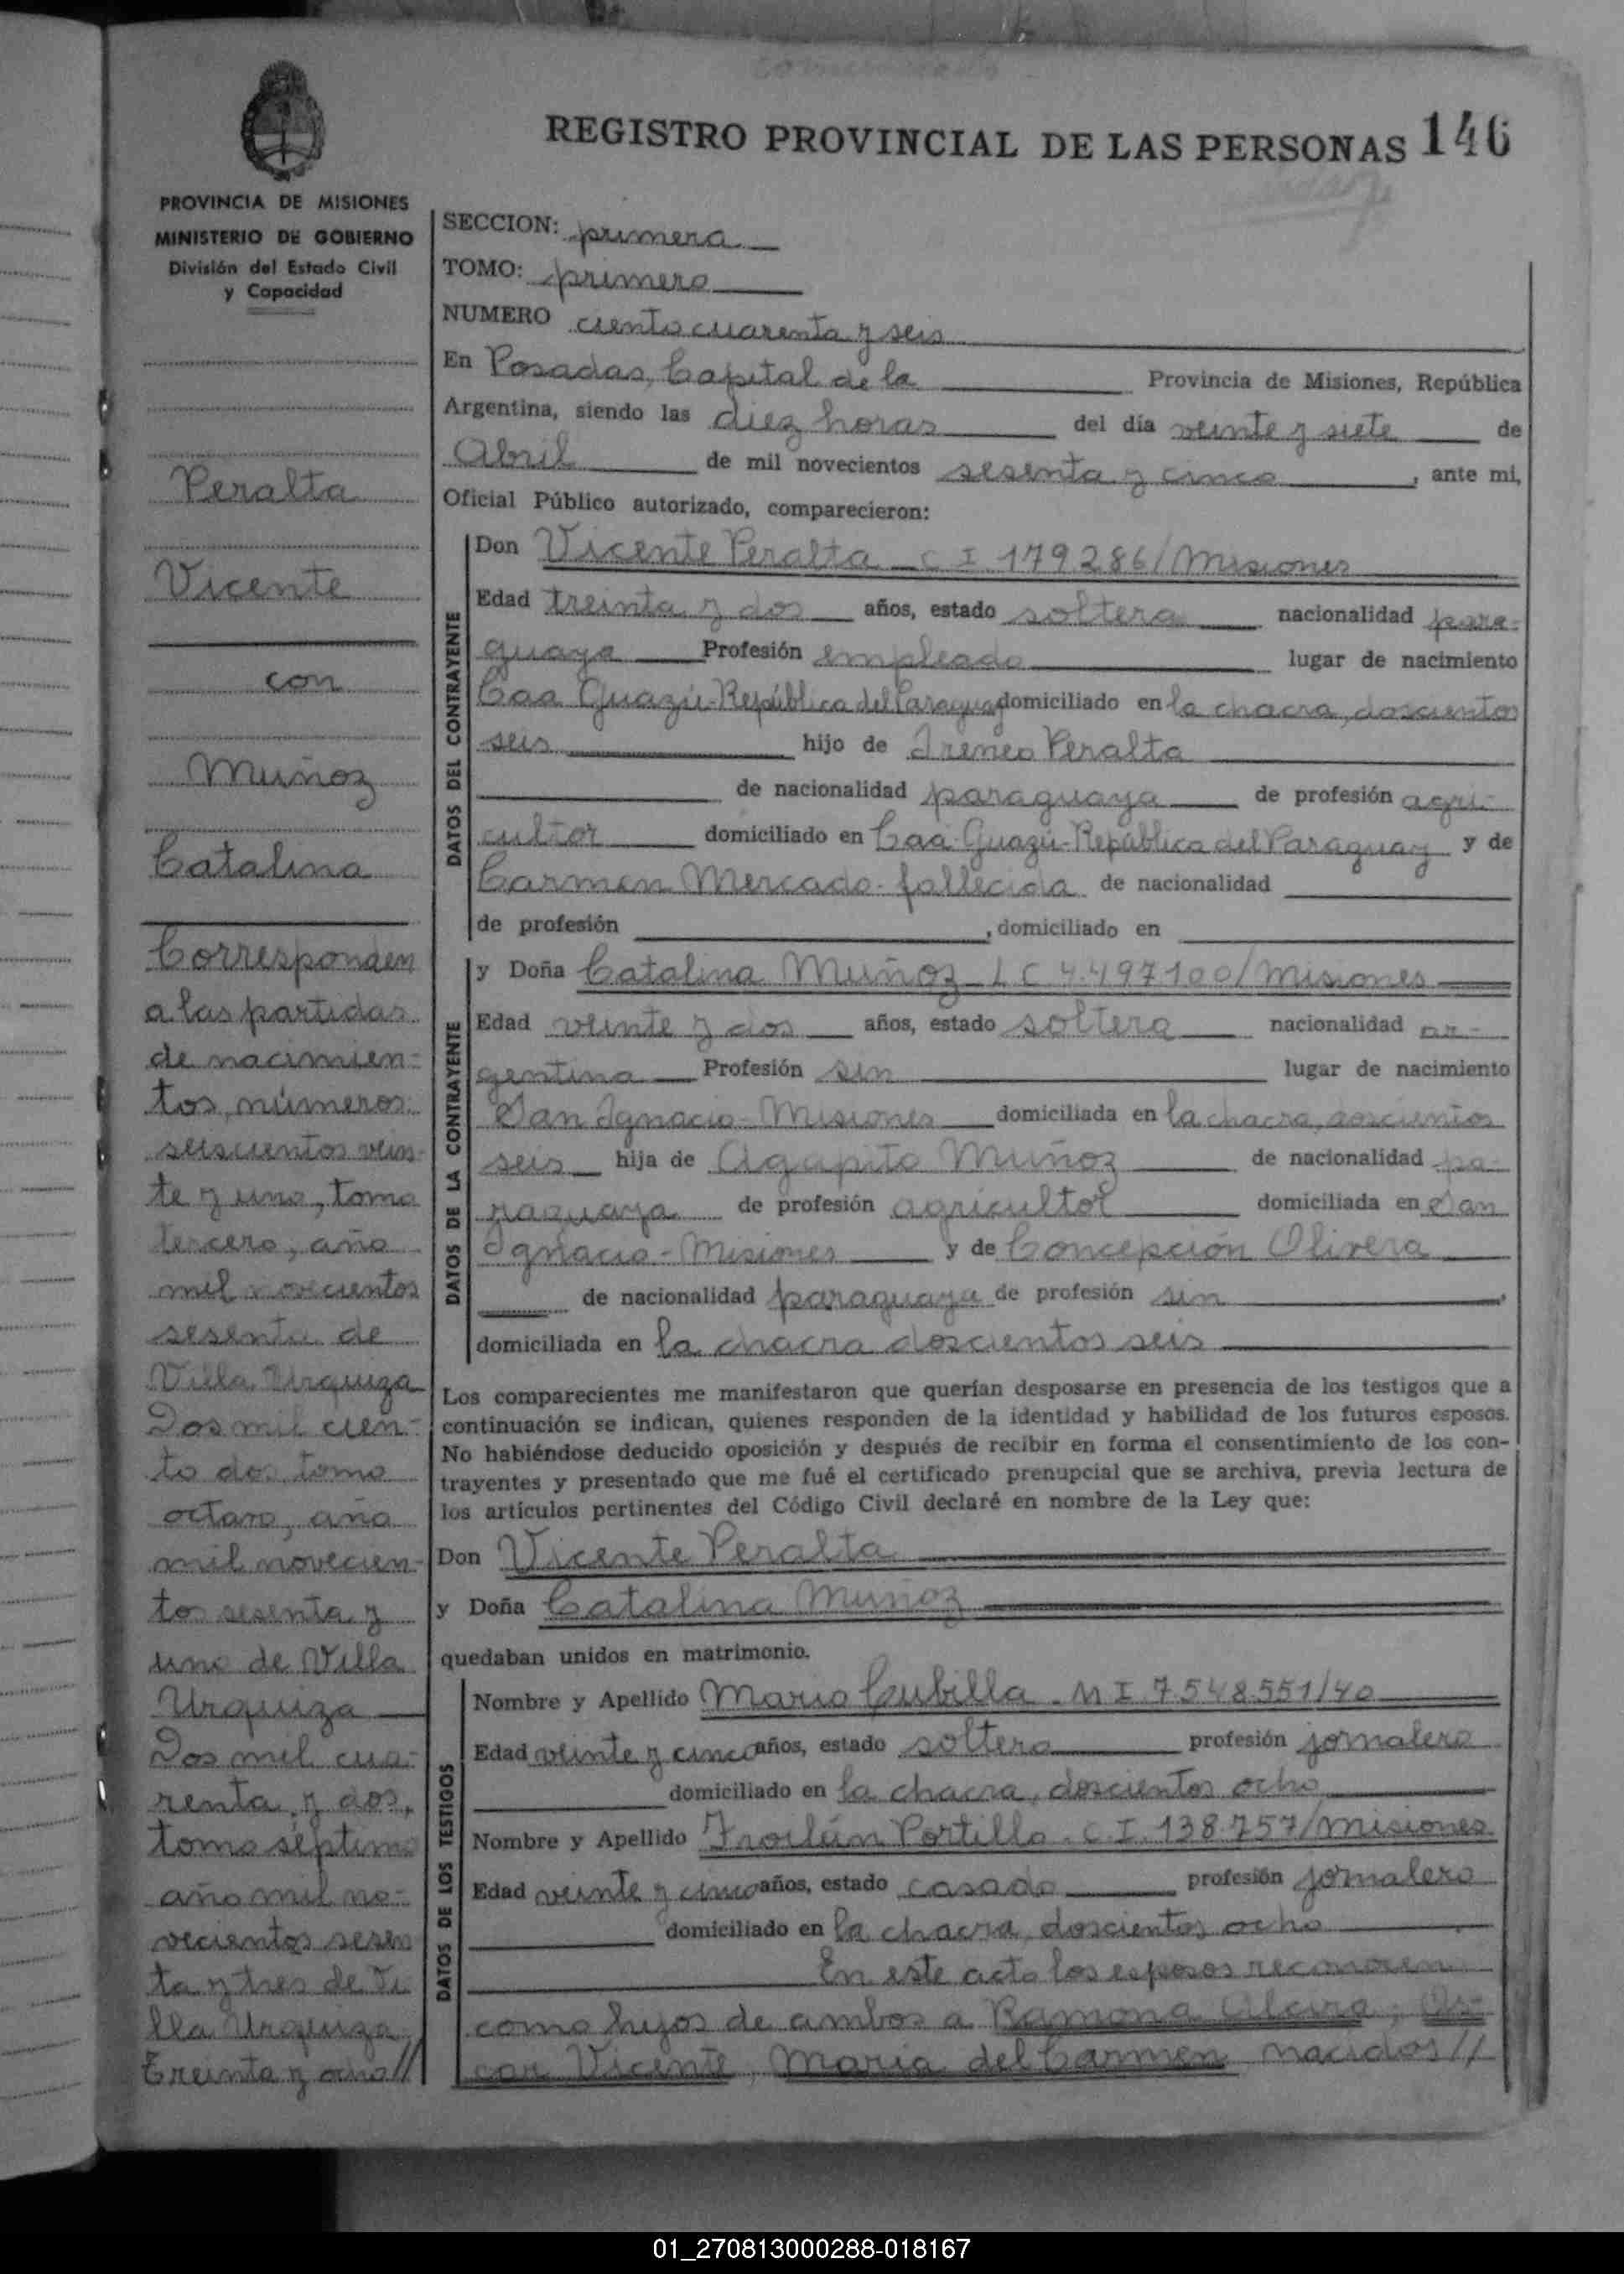 REGISTRO PROVINCIAL DE LAS PERSONAS 146
PROVINCIA DE MISIONES
MINISTERIO DE GOBIERNO
División del Estado Civil
y Capacidad
Peralta
Vicente
con
Muñoz
Catalina
Corresponden
a las partidas
de nacimien-
tos, números
seiscientos vein-
te y uno, tomo
tercero, año
mil novecientos
sesenta de
Villa Urquiza
Dos mil cien-
to dos tomo
octavo, año
mil novecien-
tos sesenta y
uno de Villa
Urquiza
Dos mil cua-
renta y dos,
tomo séptimo
año mil no-
vecientos sesen
ta y tres de Vi
lla Urquiza
Treinta y ocho//
SECCION: primera
TOMO: primero
NUMERO ciento cuarenta y seis
En Posadas, Capital de la Provincia de Misiones, República
Argentina, siendo las diez horas del día veinte y siete de
Abril de mil novecientos sesenta y cinco, ante mi,
Oficial Público autorizado, comparecieron:
DATOS DEL CONTRAYENTE
Don Vicente Peralta - C I 179286/Misiones
Edad treinta y dos años, estado soltero nacionalidad para-
guaya Profesión empleado lugar de nacimiento
Caa Guazú-República del Paraguay domiciliado en la chacra, doscientos
seis hijo de Ireneo Peralta
de nacionalidad paraguaya de profesión agri-
cultor domiciliado en Caa Guazú-República del Paraguay y de
Carmen Mercado-fallecida de nacionalidad
de profesión , domiciliado en
DATOS DE LA CONTRAYENTE
y Doña Catalina Muñoz - L C 4.497100/Misiones
Edad veinte y dos años, estado soltera nacionalidad ar-
gentina Profesión sin lugar de nacimiento
San Ignacio-Misiones domiciliada en la chacra, doscientos
seis hija de Agapito Muñoz de nacionalidad pa-
raguaya de profesión agricultor domiciliada en San
Ignacio-Misiones y de Concepción Olivera
de nacionalidad paraguaya de profesión sin ,
domiciliada en la chacra doscientos seis
Los comparecientes me manifestaron que querían desposarse en presencia de los testigos que a
continuación se indican, quienes responden de la identidad y habilidad de los futuros esposos.
No habiéndose deducido oposición y después de recibir en forma el consentimiento de los con-
trayentes y presentado que me fué el certificado prenupcial que se archiva, previa lectura de
los artículos pertinentes del Código Civil declaré en nombre de la Ley que:
Don Vicente Peralta
y Doña Catalina Muñoz
quedaban unidos en matrimonio.
DATOS DE LOS TESTIGOS
Nombre y Apellido Mario Cubilla - M I 7.548.551/40
Edad veinte y cinco años, estado soltero profesión jornalero
domiciliado en la chacra, doscientos ocho
Nombre y Apellido Froilán Portillo - C.I. 138.757/Misiones
Edad veinte y cinco años, estado casado profesión jornalero
domiciliado en la chacra, doscientos ocho
En este acto los esposos reconocen
como hijos de ambos a Ramona Alcira, Os-
car Vicente, Maria del Carmen nacidos//
01_270813000288-018167